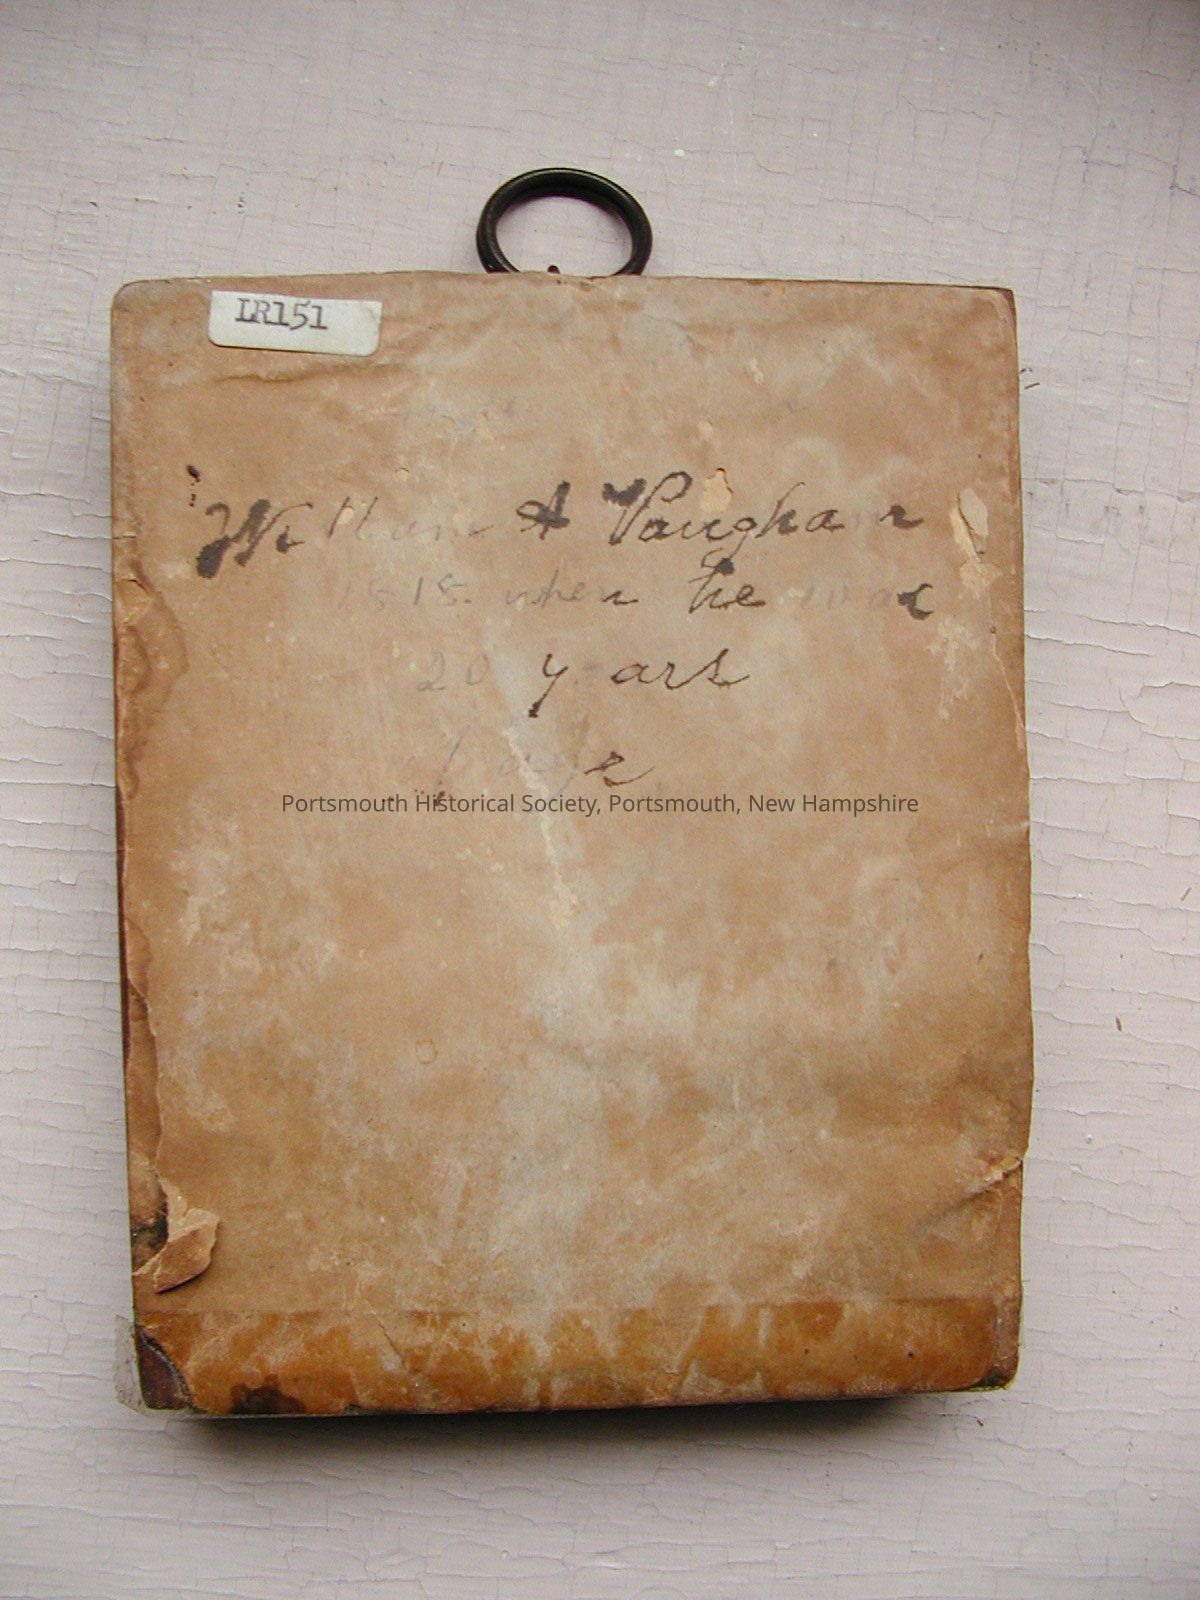 LR151
William A Vaughan
1818. when he was
20 years
age
Portsmouth Historical Society, Portsmouth, New Hampshire